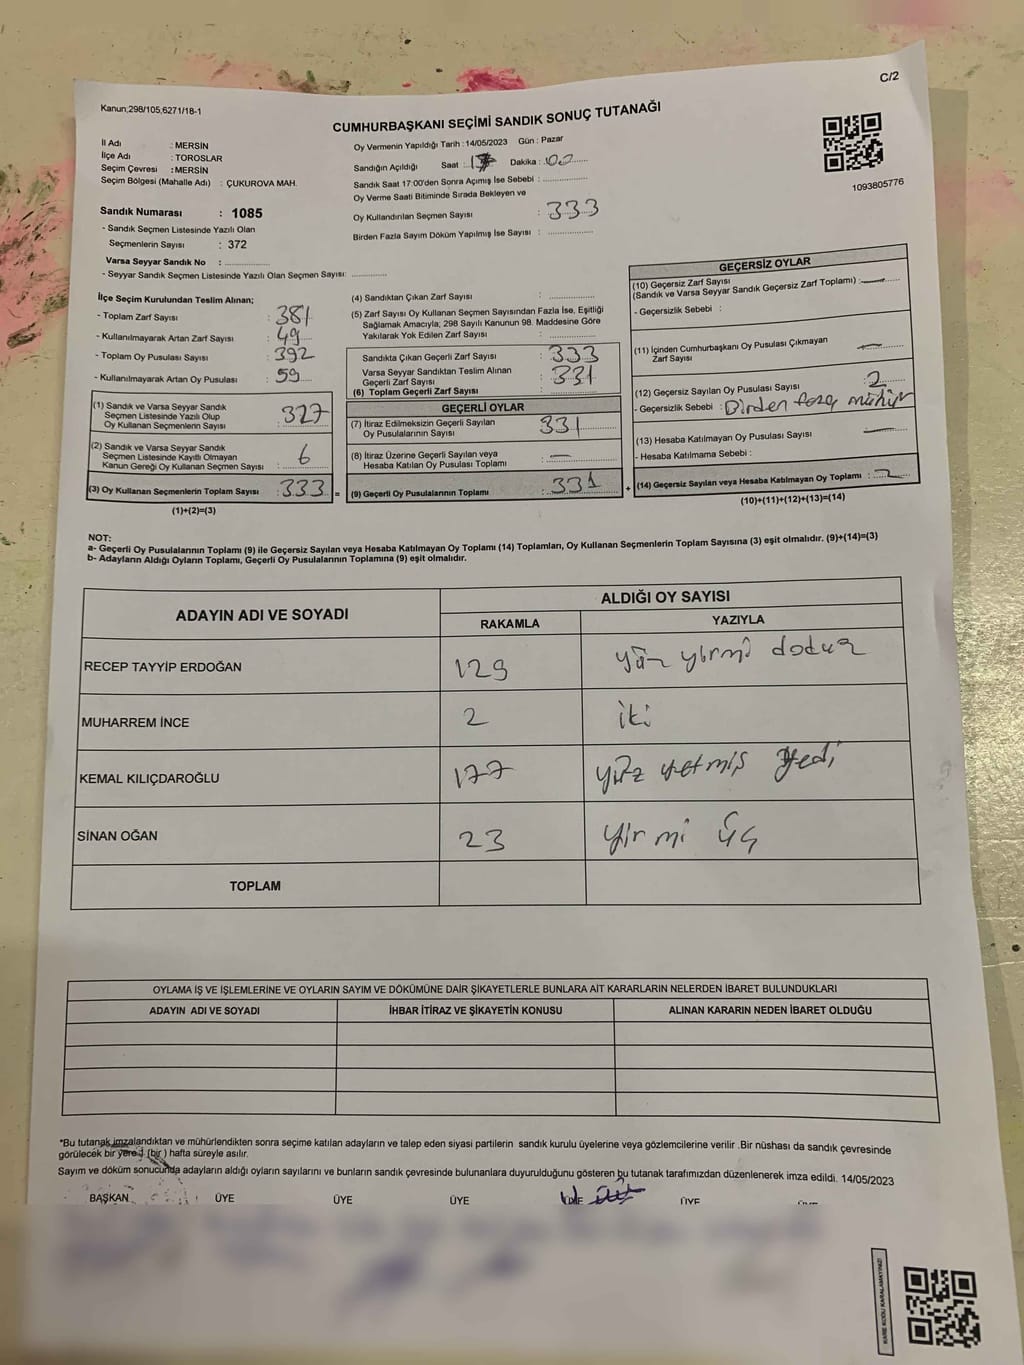 C/2
Kanun;298/105;6271/18-1
CUMHURBAŞKANI SEÇİMİ SANDIK SONUÇ TUTANAĞI
İl Adı : MERSİN
İlçe Adı : TOROSLAR
Seçim Çevresi : MERSİN
Seçim Bölgesi (Mahalle Adı) : ÇUKUROVA MAH.
Sandık Numarası : 1085
- Sandık Seçmen Listesinde Yazılı Olan
Seçmenlerin Sayısı : 372
Varsa Seyyar Sandık No : ..............
- Seyyar Sandık Seçmen Listesinde Yazılı Olan Seçmen Sayısı: ............
Oy Vermenin Yapıldığı Tarih : 14/05/2023 Gün : Pazar
Sandığın Açıldığı Saat : 17 Dakika : 00
Sandık Saat 17:00'den Sonra Açımış İse Sebebi : ...............
Oy Verme Saati Bitiminde Sırada Bekleyen ve
Oy Kullandırılan Seçmen Sayısı : 333
Birden Fazla Sayım Döküm Yapılmış İse Sayısı : ...............
1093805776
İlçe Seçim Kurulundan Teslim Alınan;
- Toplam Zarf Sayısı : 381
- Kullanılmayarak Artan Zarf Sayısı : 49
- Toplam Oy Pusulası Sayısı : 392
- Kullanılmayarak Artan Oy Pusulası : 59
(1) Sandık ve Varsa Seyyar Sandık
Seçmen Listesinde Yazılı Olup
Oy Kullanan Seçmenlerin Sayısı : 327
(2) Sandık ve Varsa Seyyar Sandık
Seçmen Listesinde Kayıtlı Olmayan
Kanun Gereği Oy Kullanan Seçmen Sayısı : 6
(3) Oy Kullanan Seçmenlerin Toplam Sayısı : 333 =
(1)+(2)=(3)
(4) Sandıktan Çıkan Zarf Sayısı : ...............
(5) Zarf Sayısı Oy Kullanan Seçmen Sayısından Fazla İse, Eşitliği
Sağlamak Amacıyla; 298 Sayılı Kanunun 98. Maddesine Göre
Yakılarak Yok Edilen Zarf Sayısı : ...............
Sandıkta Çıkan Geçerli Zarf Sayısı : 333
Varsa Seyyar Sandıktan Teslim Alınan
Geçerli Zarf Sayısı : 331
(6) Toplam Geçerli Zarf Sayısı
GEÇERLİ OYLAR
(7) İtiraz Edilmeksizin Geçerli Sayılan
Oy Pusulalarının Sayısı : 331
(8) İtiraz Üzerine Geçerli Sayılan veya
Hesaba Katılan Oy Pusulası Toplamı : —
(9) Geçerli Oy Pusulalarının Toplamı : 331 +
GEÇERSİZ OYLAR
(10) Geçersiz Zarf Sayısı
(Sandık ve Varsa Seyyar Sandık Geçersiz Zarf Toplamı) : —
- Geçersizlik Sebebi :
(11) İçinden Cumhurbaşkanı Oy Pusulası Çıkmayan
Zarf Sayısı : —
(12) Geçersiz Sayılan Oy Pusulası Sayısı : 2
- Geçersizlik Sebebi : Birden fazla mühür
(13) Hesaba Katılmayan Oy Pusulası Sayısı : —
- Hesaba Katılmama Sebebi :
(14) Geçersiz Sayılan veya Hesaba Katılmayan Oy Toplamı : 2
(10)+(11)+(12)+(13)=(14)
NOT:
a- Geçerli Oy Pusulalarının Toplamı (9) ile Geçersiz Sayılan veya Hesaba Katılmayan Oy Toplamı (14) Toplamları, Oy Kullanan Seçmenlerin Toplam Sayısına (3) eşit olmalıdır. (9)+(14)=(3)
b- Adayların Aldığı Oyların Toplamı, Geçerli Oy Pusulalarının Toplamına (9) eşit olmalıdır.
ADAYIN ADI VE SOYADI ALDIĞI OY SAYISI
RAKAMLA YAZIYLA
RECEP TAYYİP ERDOĞAN 129 yüz yirmi dokuz
MUHARREM İNCE 2 iki
KEMAL KILIÇDAROĞLU 177 yüz yetmiş yedi
SİNAN OĞAN 23 yirmi üç
TOPLAM
OYLAMA İŞ VE İŞLEMLERİNE VE OYLARIN SAYIM VE DÖKÜMÜNE DAİR ŞİKAYETLERLE BUNLARA AİT KARARLARIN NELERDEN İBARET BULUNDUKLARI
ADAYIN ADI VE SOYADI İHBAR İTİRAZ VE ŞİKAYETİN KONUSU ALINAN KARARIN NEDEN İBARET OLDUĞU
*Bu tutanak imzalandıktan ve mühürlendikten sonra seçime katılan adayların ve talep eden siyasi partilerin sandık kurulu üyelerine veya gözlemcilerine verilir .Bir nüshası da sandık çevresinde
görülecek bir yere 1 (bir ) hafta süreyle asılır.
Sayım ve döküm sonucunda adayların aldığı oyların sayılarını ve bunların sandık çevresinde bulunanlara duyurulduğunu gösteren bu tutanak tarafımızdan düzenlenerek imza edildi. 14/05/2023
BAŞKAN ÜYE ÜYE ÜYE ÜYE ÜYE
KARE KODU KARALAMAYINIZ!